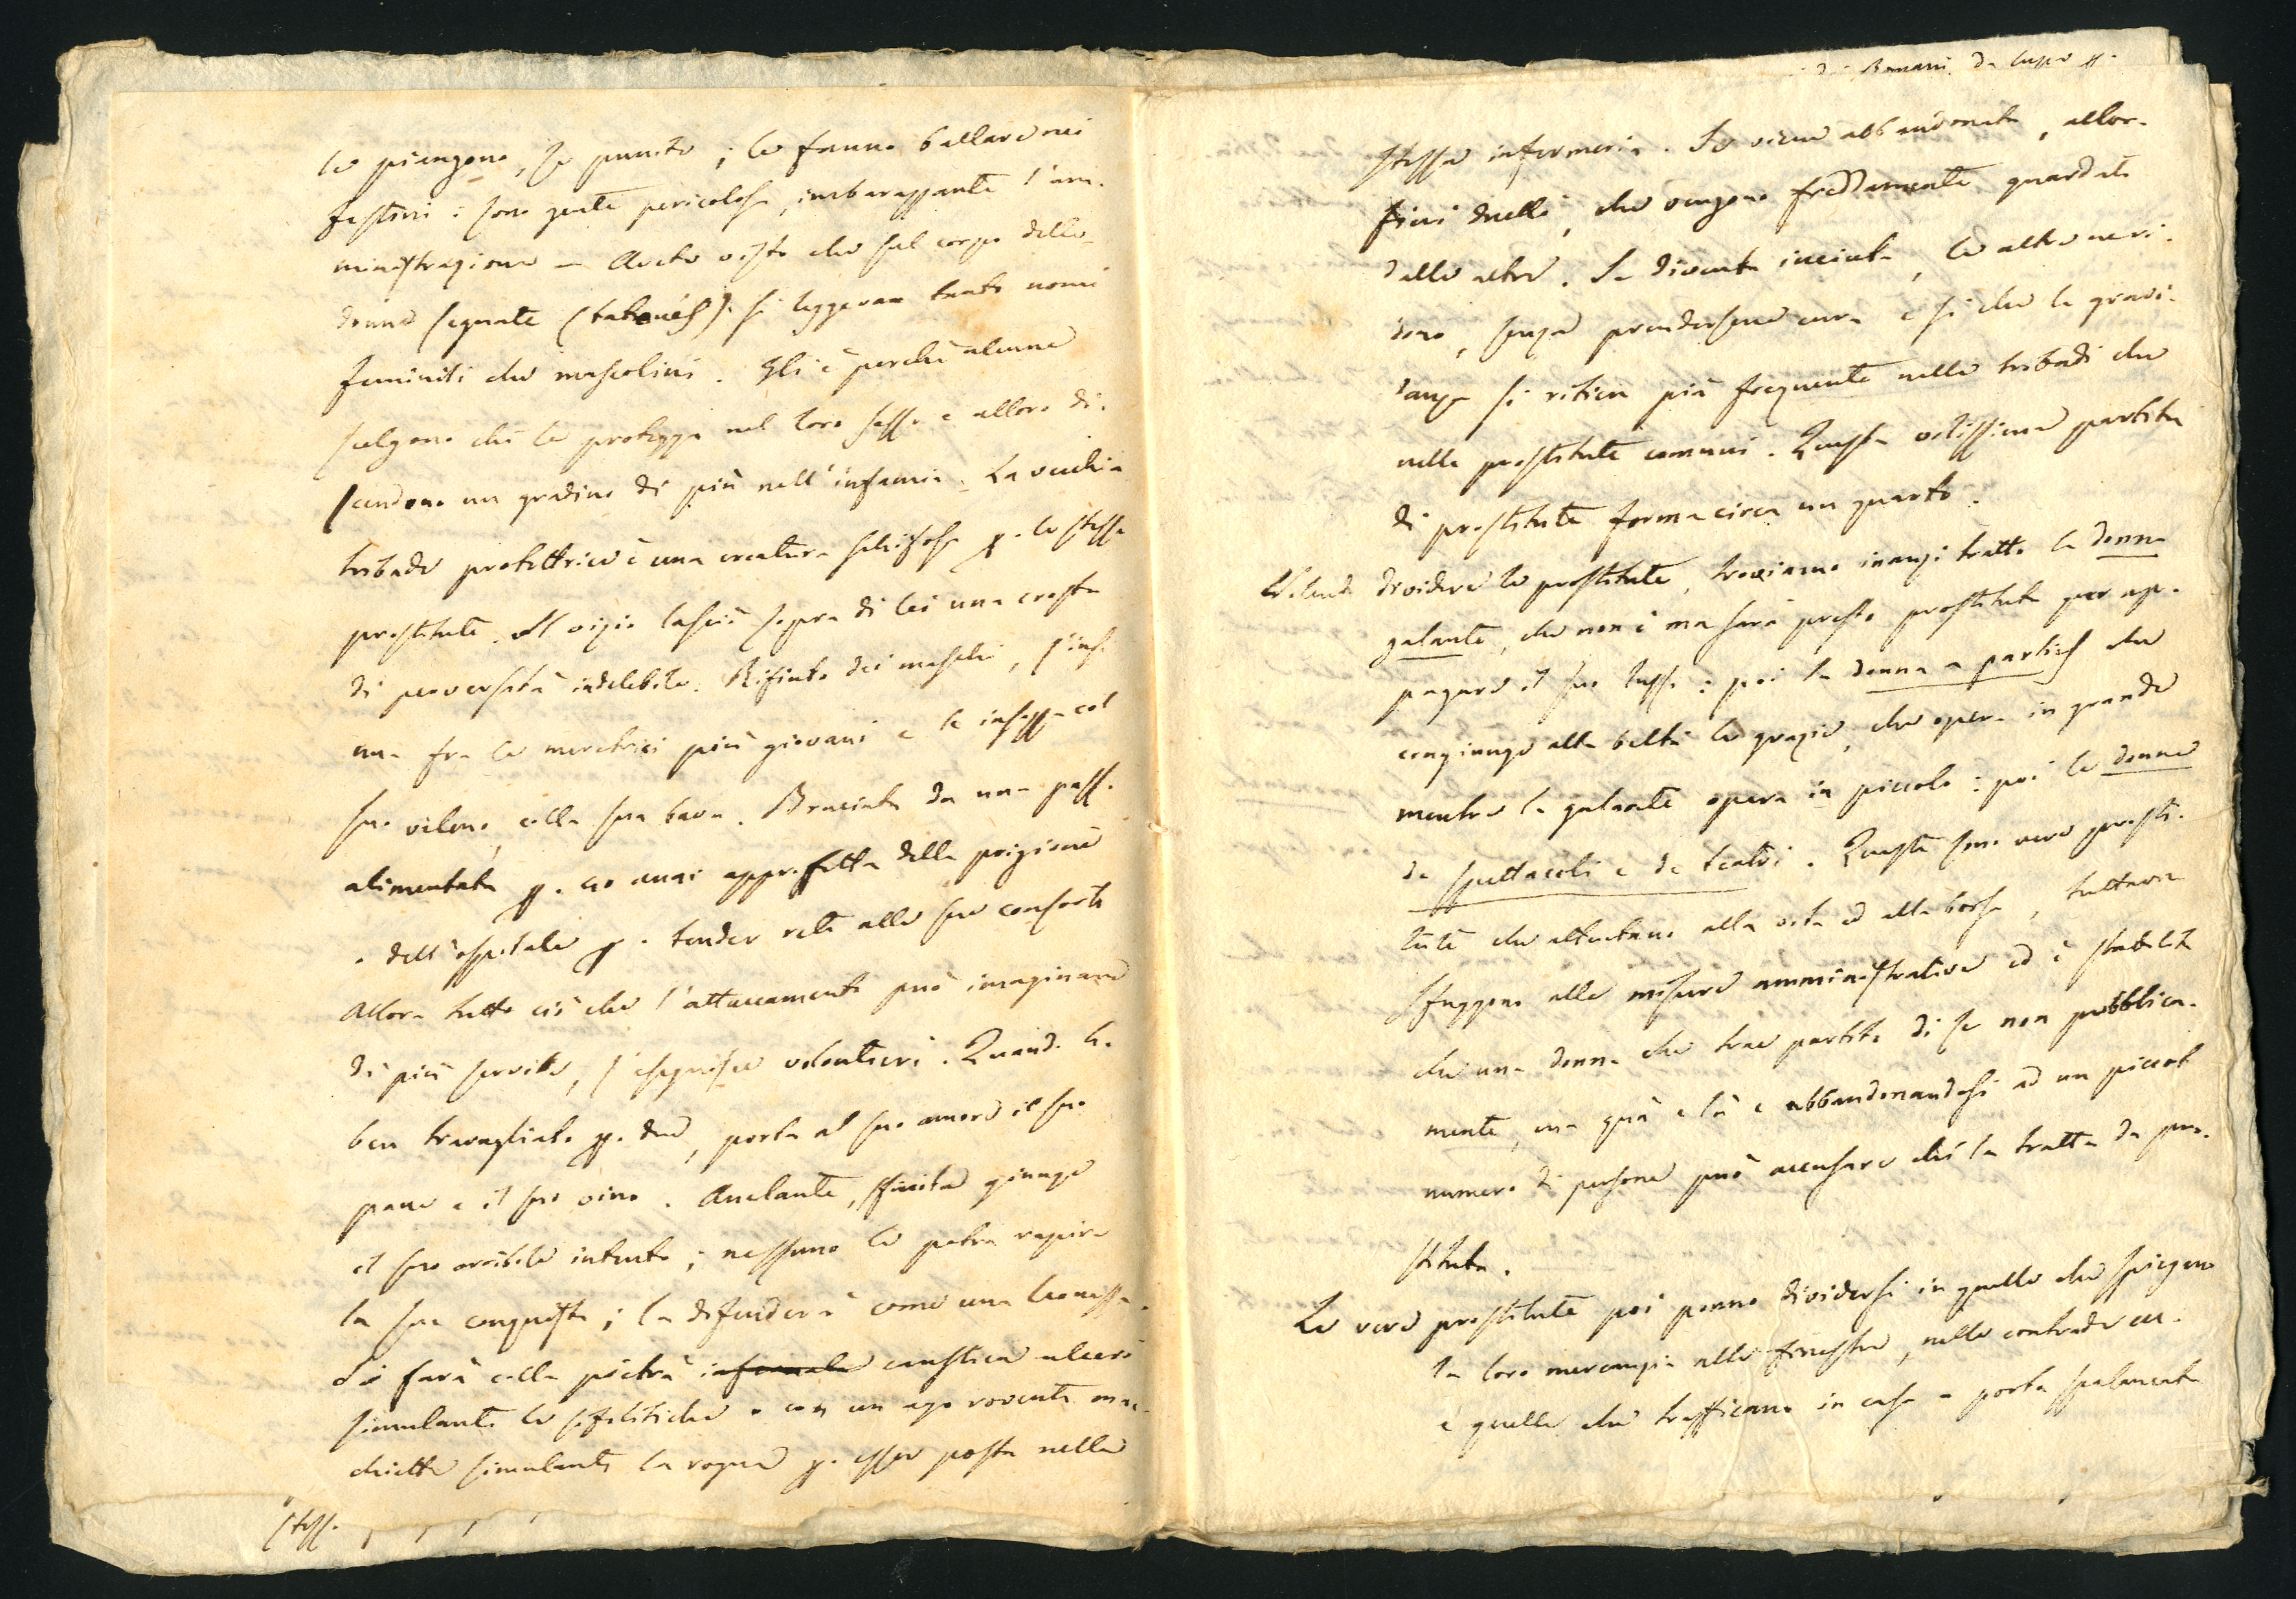 le piangono, se punite; le fanno ballare nei
festini: sono gente pericolosa, imbarazzante l'am-
ministrazione — Avete visto che sul corpo delle
donne segnate (tatoués) si leggevan tanto nomi
feminili che mascolini. Gli è perchè alcune
scelgono chi le protegga nel loro sesso e allora di-
scendono un gradino di più nell'infamia. La vecchia
tribade protettrice è una creatura schifosa p. le stesse
prostitute. Il vizio lasciò sopra di lei una crosta
di perversità indelebile. Rifiuto dei maschi, s'insi-
nua fra le meretrici più giovani e le insozza col
suo veleno, colla sua bava. Bruciata da una pass.
alimentata p. 20 anni approfitta della prigione
o dell'ospitale p. tender reti alle sue consorti
Allora tutto ciò che l'attaccamento può imaginare
di più servile, s'eseguisce volontieri. Quand. ha
ben travagliato p. due, porta al suo amore il suo
pane e il suo vino. Anelante, sfinita giunge
il suo orribile intento; nessuno le potrà rapire
la sua conquista; la difenderà come una leonessa.
Si farà colla pietra infernale caustica ulceri
simulanti le sifilitiche o con un ago rovente mac-
chiette simulanti la rogna p. esser posta nella
stess.
dei Romani da lupo p.
stessa infermeria. Se viene abbandonata, allor-
fieri duelli, che vengono freddamente guardati
dalle altre. Se diventa incinta, le altre ne ri-
dono, senza prendersene cura e sì che la gravi-
danza si ritien più frequente nelle tribadi che
nelle prostitute comuni. Questa vilissima partita
di prostitute forma circa un quarto.
Volendo dividere le prostitute, troviamo inanzi tratto la donna
galante, che non è ma sarà presto prostituta per ap-
pagare il suo lusso: poi la donna a parties che
congiunge alla beltà le grazie, che opera in grande
mentre la galante opera in piccolo: poi le donne
da spettacoli e da teatri. Queste sono vere prosti-
tute che attentano alla vita ed alla borsa, tuttavia
sfuggono alle misure amministrative ed è stabilito
che una donna che trae partito di se non pubblica-
mente, ma quà e là e abbandonandosi ad un piccol
numero di persone può accusare chi la tratta da pro-
stituta.
Le vere prostitute poi ponno dividersi in quelle che spiegano
la loro mercanzia alle finestre, nelle contrade ec.
e quelle che trafficano in casa a porta spalancata